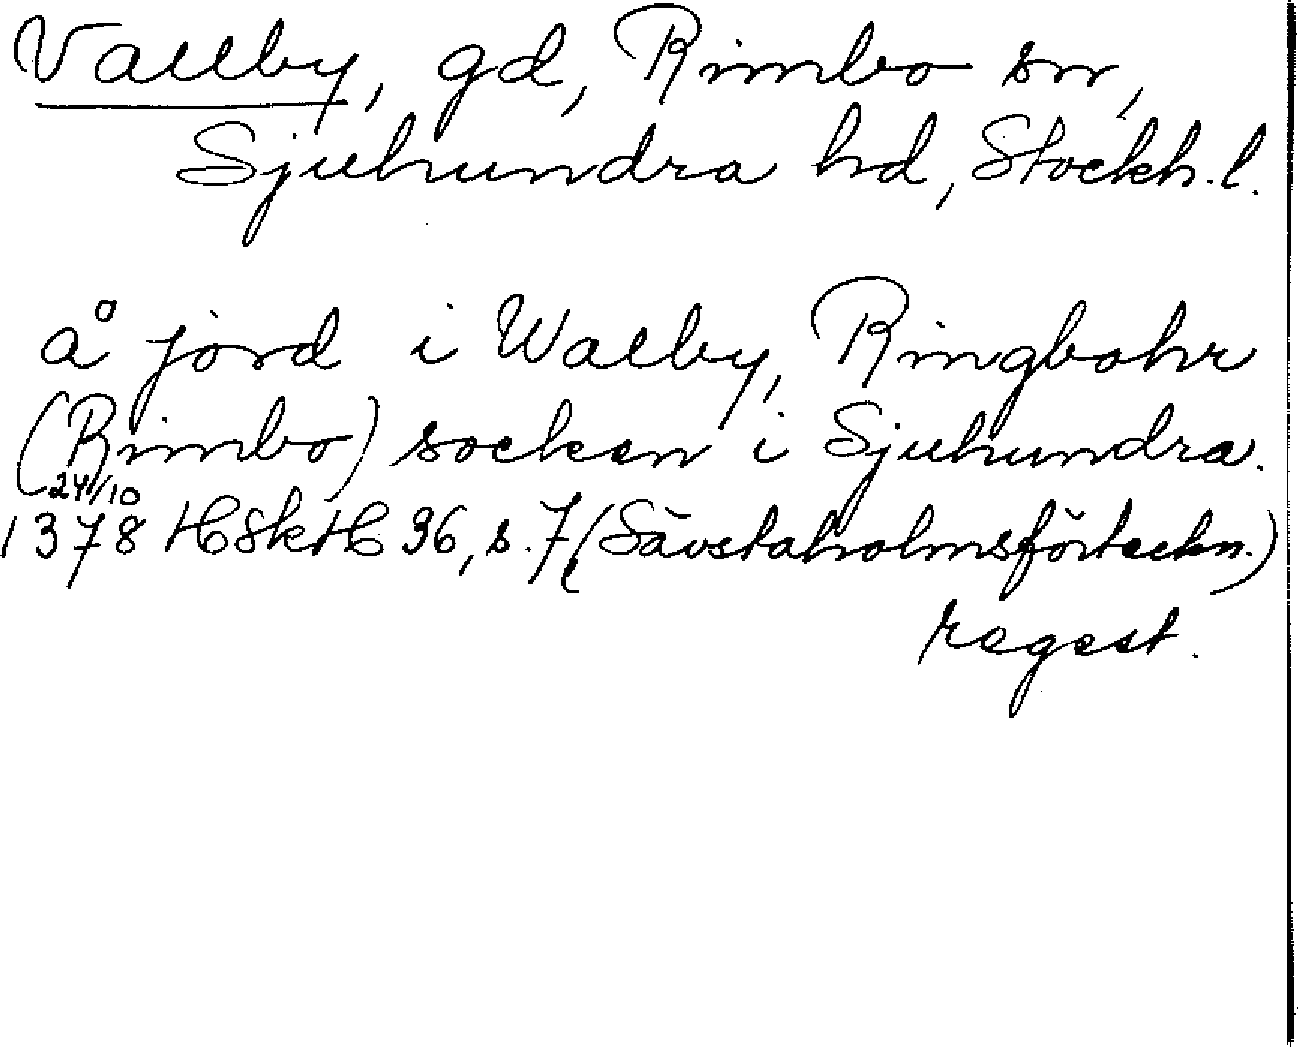 Vallby, gd, Rimbo sn,
Sjuhundra hd, Stockh. l.
å jord i Walby, Ringbohr
(Rimbo) socken i Sjuhundra.
24/10
1378 HSkH 36, s. 7 (Sävstaholmsförteckn.)
regest.